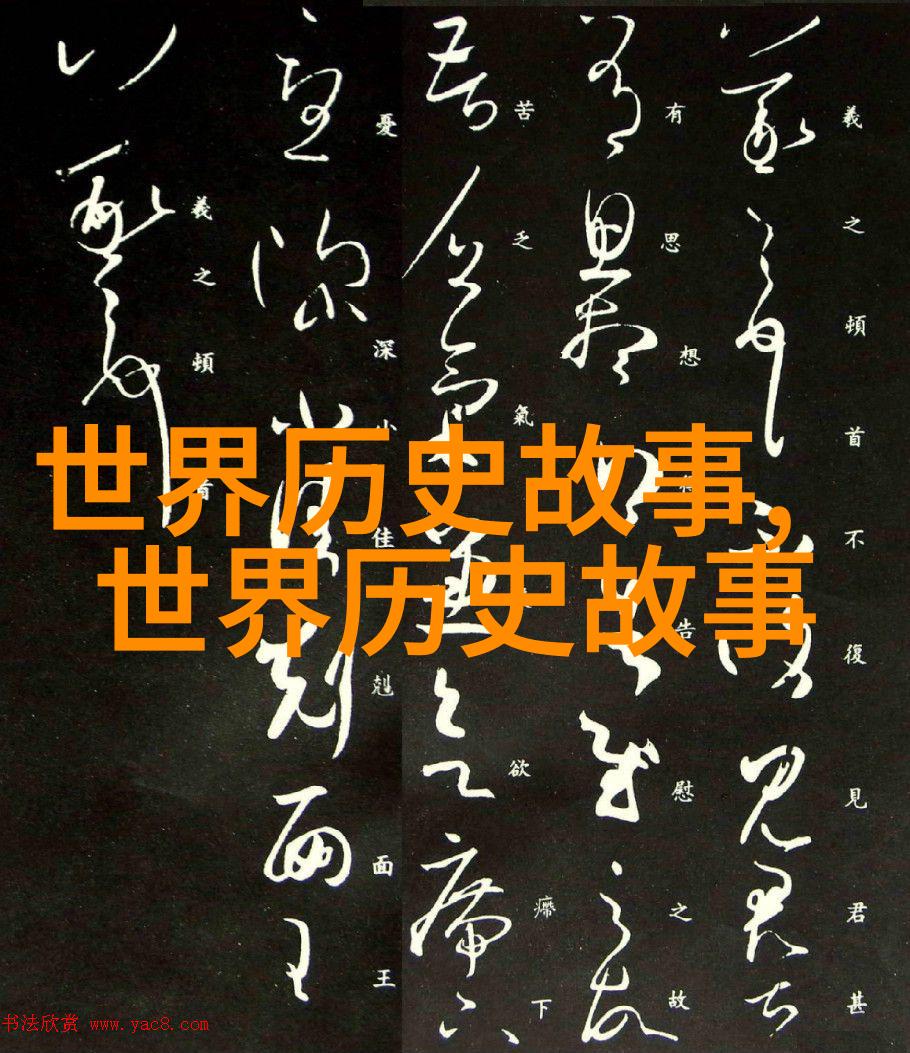 羲之頓首不復見君甚
有思想得告慰之故
苦乏氣欲㿃下
憂深小佳剋面王
羲之頓首
世界历史故事,
世界历史故事
书法欣赏 www.yac8.com